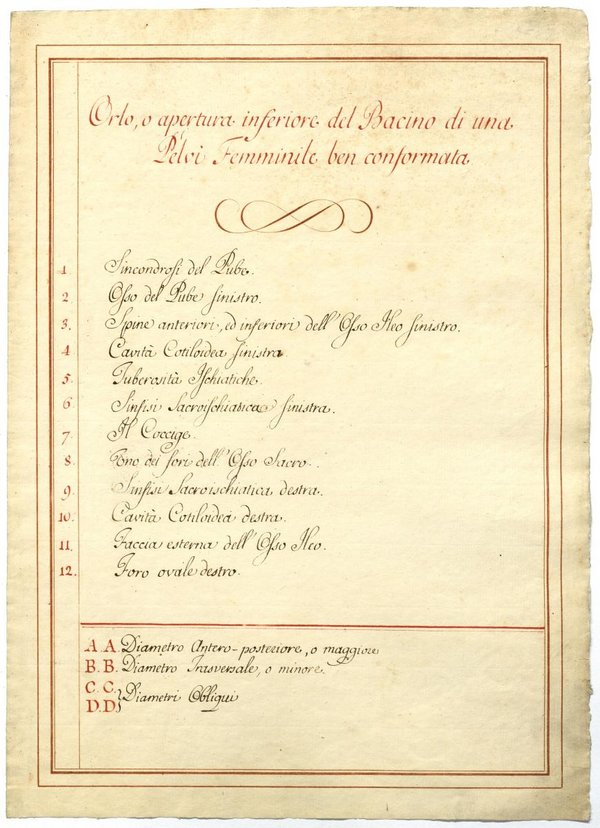 Orlo, o apertura inferiore del Bacino di una
Pelvi Femminile ben conformata
1. Sincondrosi del Pube.
2. Osso del Pube sinistro.
3. Spine anteriori, ed inferiori dell'Osso Ileo sinistro.
4. Cavità Cotiloidea sinistra
5. Tuberosità Ischiatiche.
6. Sinfisi Sacroischiatica sinistra.
7. Il Coccige.
8. Uno dei fori dell'Osso Sacro.
9. Sinfisi Sacroischiatica destra.
10. Cavità Cotiloidea destra.
11. Faccia esterna dell'Osso Ileo.
12. Foro ovale destro.
A.A. Diametro Antero-posteriore, o maggiore
B.B. Diametro Trasversale, o minore.
C.C.
D.D.} Diametri Obliqui